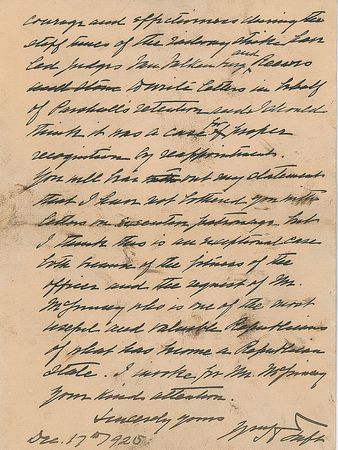 courage and effectiveness during the
stiff times of the railway strike has
led Judges Van Valkenburg and Reeves
and Stone to write letters in behalf
of Parshall's retention and I should
think it was a case for proper
recognition by reappointment.
You will bear out my statement
that I have not bothered you with
letters on executive patronage but
I think this is an exceptional case
both because of the fitness of the
officer and the request of Mr.
McKinney who is one of the most
useful and valuable Republicans
of what has become a Republican
State. I invoke for Mr. McKinney
your kind attention.
Sincerely yours
Wm H Taft
Dec. 17th 1925